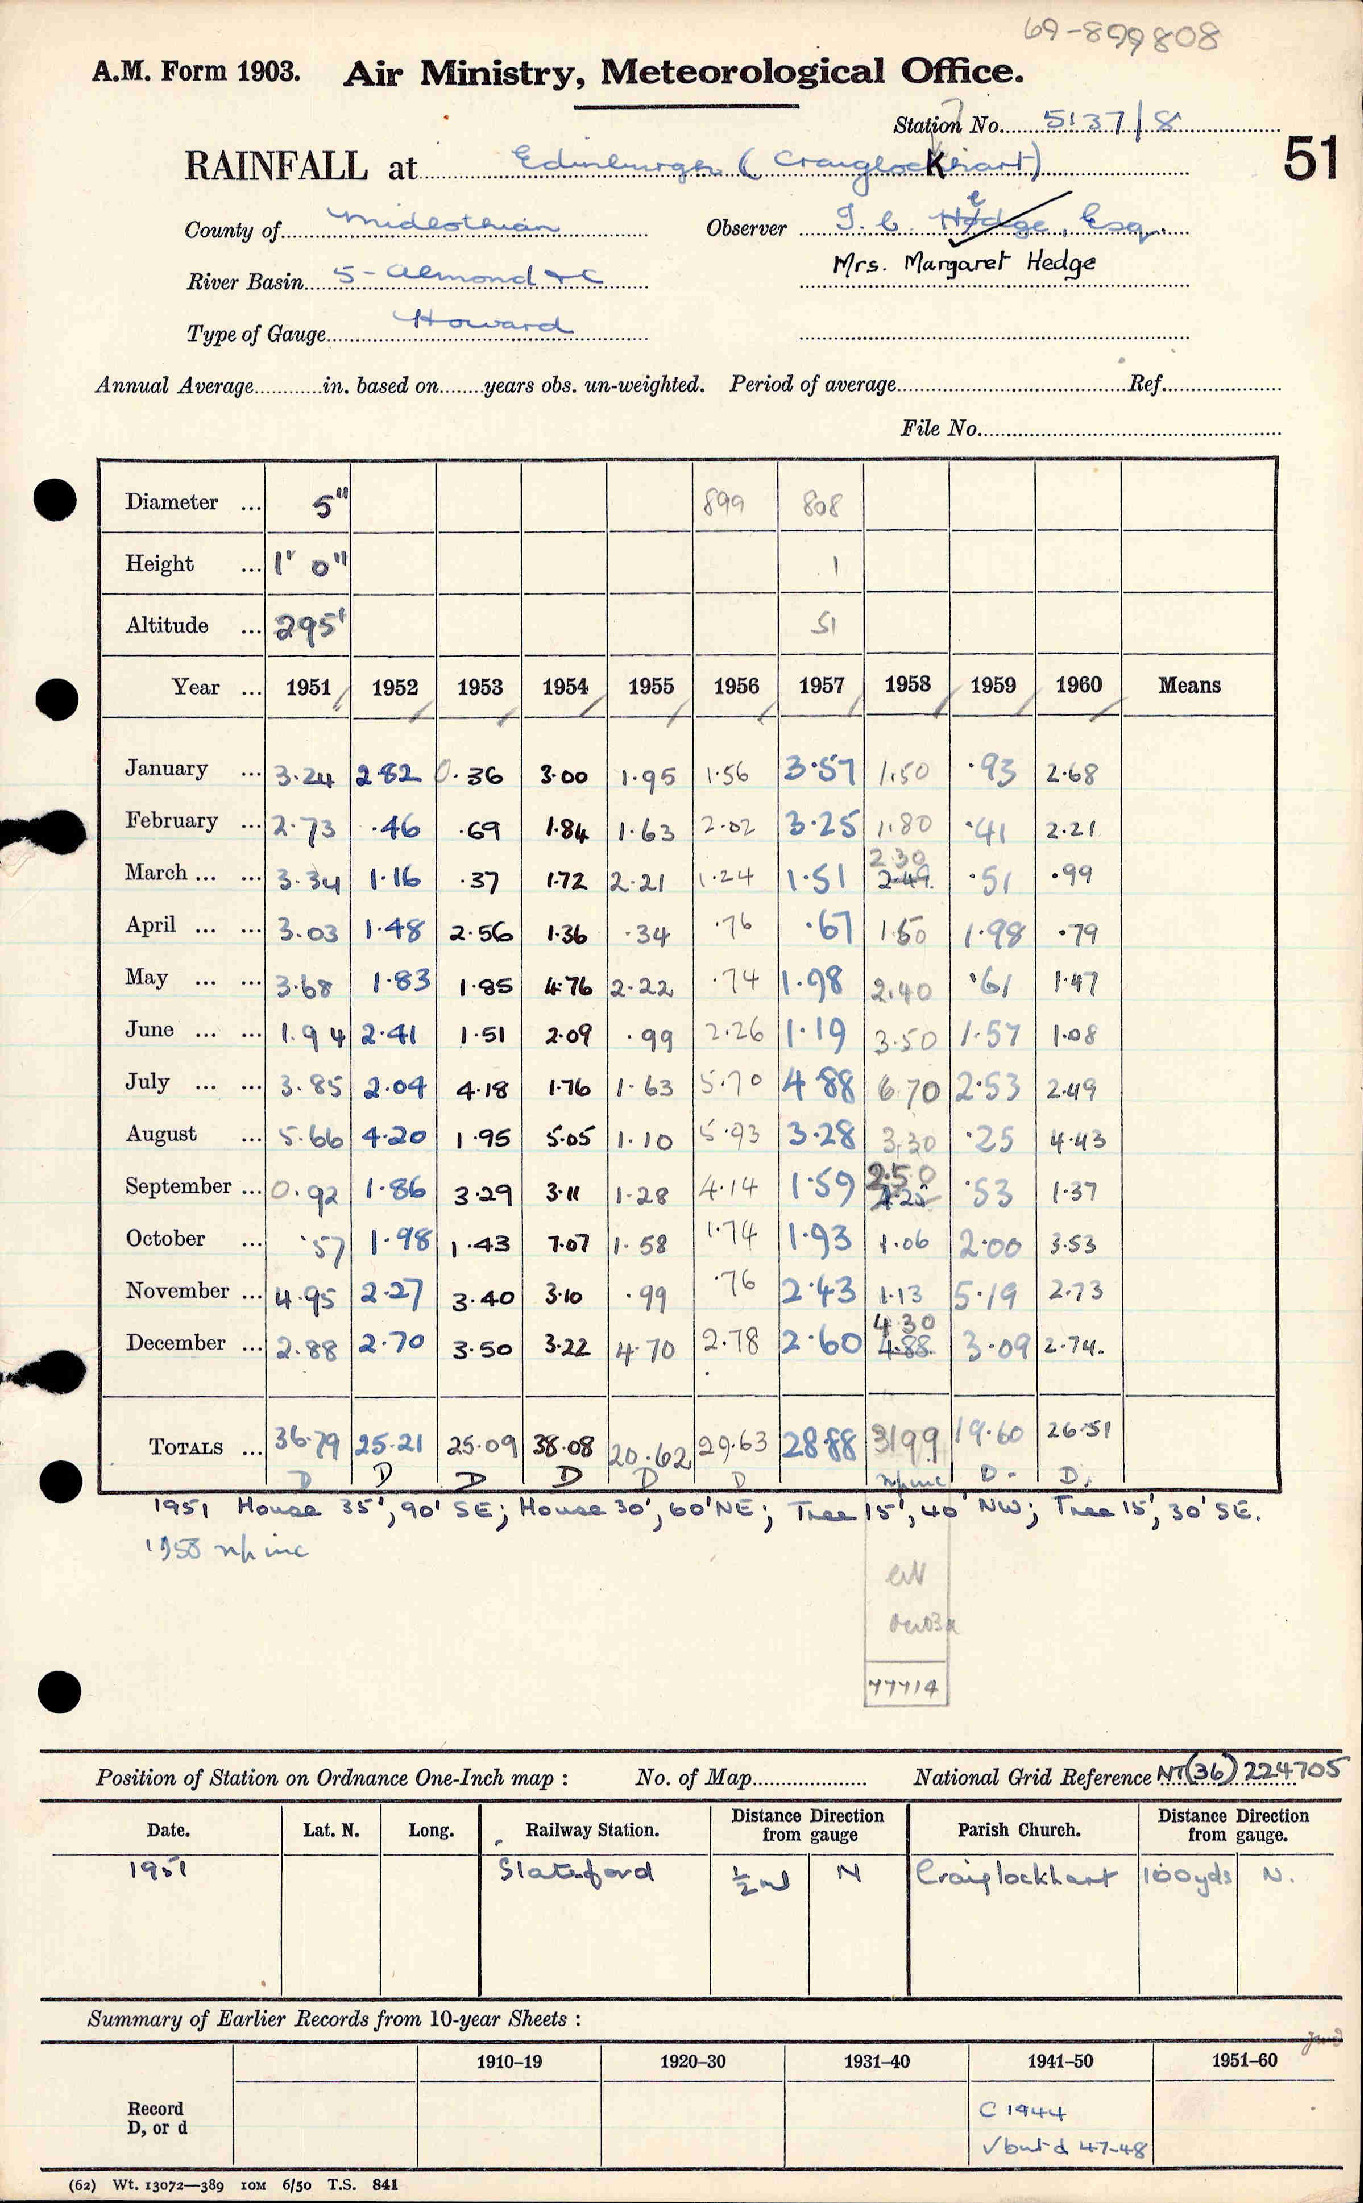 69-899808
A.M. Form 1903. Air Ministry, Meteorological Office.
Station No. 5137/8
51
RAINFALL at Edinburgh (Craiglockhart)
County of Midlothian Observer T. C. Hedge, Esq.
Mrs. Margaret Hedge
River Basin 5 - Almond & C
Type of Gauge Howard
Annual Average in. based on years obs. un-weighted. Period of average Ref.
File No.
Diameter ... 5" 899 808
Height ... 1' 0" 1
Altitude ... 295' 51
Year ... 1951 1952 1953 1954 1955 1956 1957 1958 1959 1960 Means
January ... 3.24 2.82 0.36 3.00 1.95 1.56 3.57 1.50 .93 2.68
February ... 2.73 .46 .69 1.84 1.63 2.02 3.25 1.80 .41 2.21
March ... ... 3.34 1.16 .37 1.72 2.21 1.24 1.51 2.30 2.49 .51 .99
April ... ... 3.03 1.48 2.56 1.36 .34 .76 .67 1.50 1.98 .79
May ... ... 3.68 1.83 1.85 4.76 2.22 .74 1.98 2.40 .61 1.47
June ... ... 1.94 2.41 1.51 2.09 .99 2.26 1.19 3.50 1.57 1.08
July ... ... 3.85 2.04 4.18 1.76 1.63 5.70 4.88 6.70 2.53 2.49
August ... 5.66 4.20 1.95 5.05 1.10 5.93 3.28 3.30 .25 4.43
September ... 0.92 1.86 3.29 3.11 1.28 4.14 1.59 2.50 .53 1.37
October ... .57 1.98 1.43 7.07 1.58 1.74 1.93 1.06 2.00 3.53
November ... 4.95 2.27 3.40 3.10 .99 .76 2.43 1.13 5.19 2.73
December ... 2.88 2.70 3.50 3.22 4.70 2.78 2.60 4.30 4.88 3.09 2.74
TOTALS ... 36.79 25.21 25.09 38.08 20.62 29.63 28.88 31.99 19.60 26.51
D D D D D D D. D.
1951 House 35', 90' SE; House 30', 60' NE; Tree 15', 40' NW; Tree 15', 30' SE.
1958
77714
Position of Station on Ordnance One-Inch map : No. of Map National Grid Reference NT(36)224705
Date. Lat. N. Long. Railway Station. Distance from Direction gauge Parish Church. Distance from Direction gauge.
1951 Slateford ½ ml N Craiglockhart 100yds N.
Summary of Earlier Records from 10-year Sheets :
1910-19 1920-30 1931-40 1941-50 1951-60
Record
D, or d
C 1944
√ but d 47-48
(62) Wt. 13072—389 10M 6/50 T.S. 841